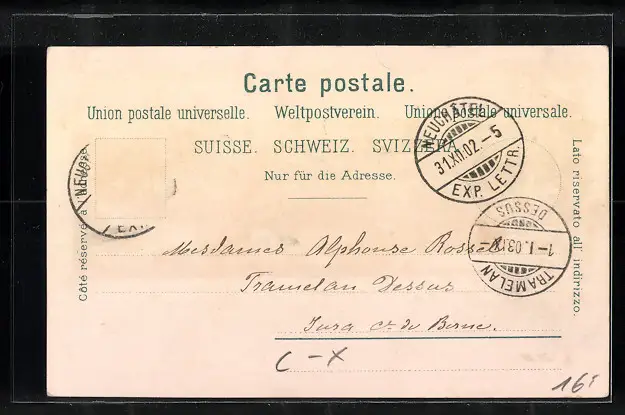 Carte postale.
Union postale universelle. Weltpostverein. Unione postale universale.
SUISSE. SCHWEIZ. SVIZZERA.
Nur für die Adresse.
Côté réservé à l'adresse.
Lato riservato all' indirizzo.
NEUCHÂTEL
31.XII.02.-5
EXP. LETTR.
NEUC
EX.
DESSUS
1-I.03
TRAMELAN
Mesdames Alphonse Rossel
Tramelan Dessus
Jura Ct. de Berne.
C-X
16